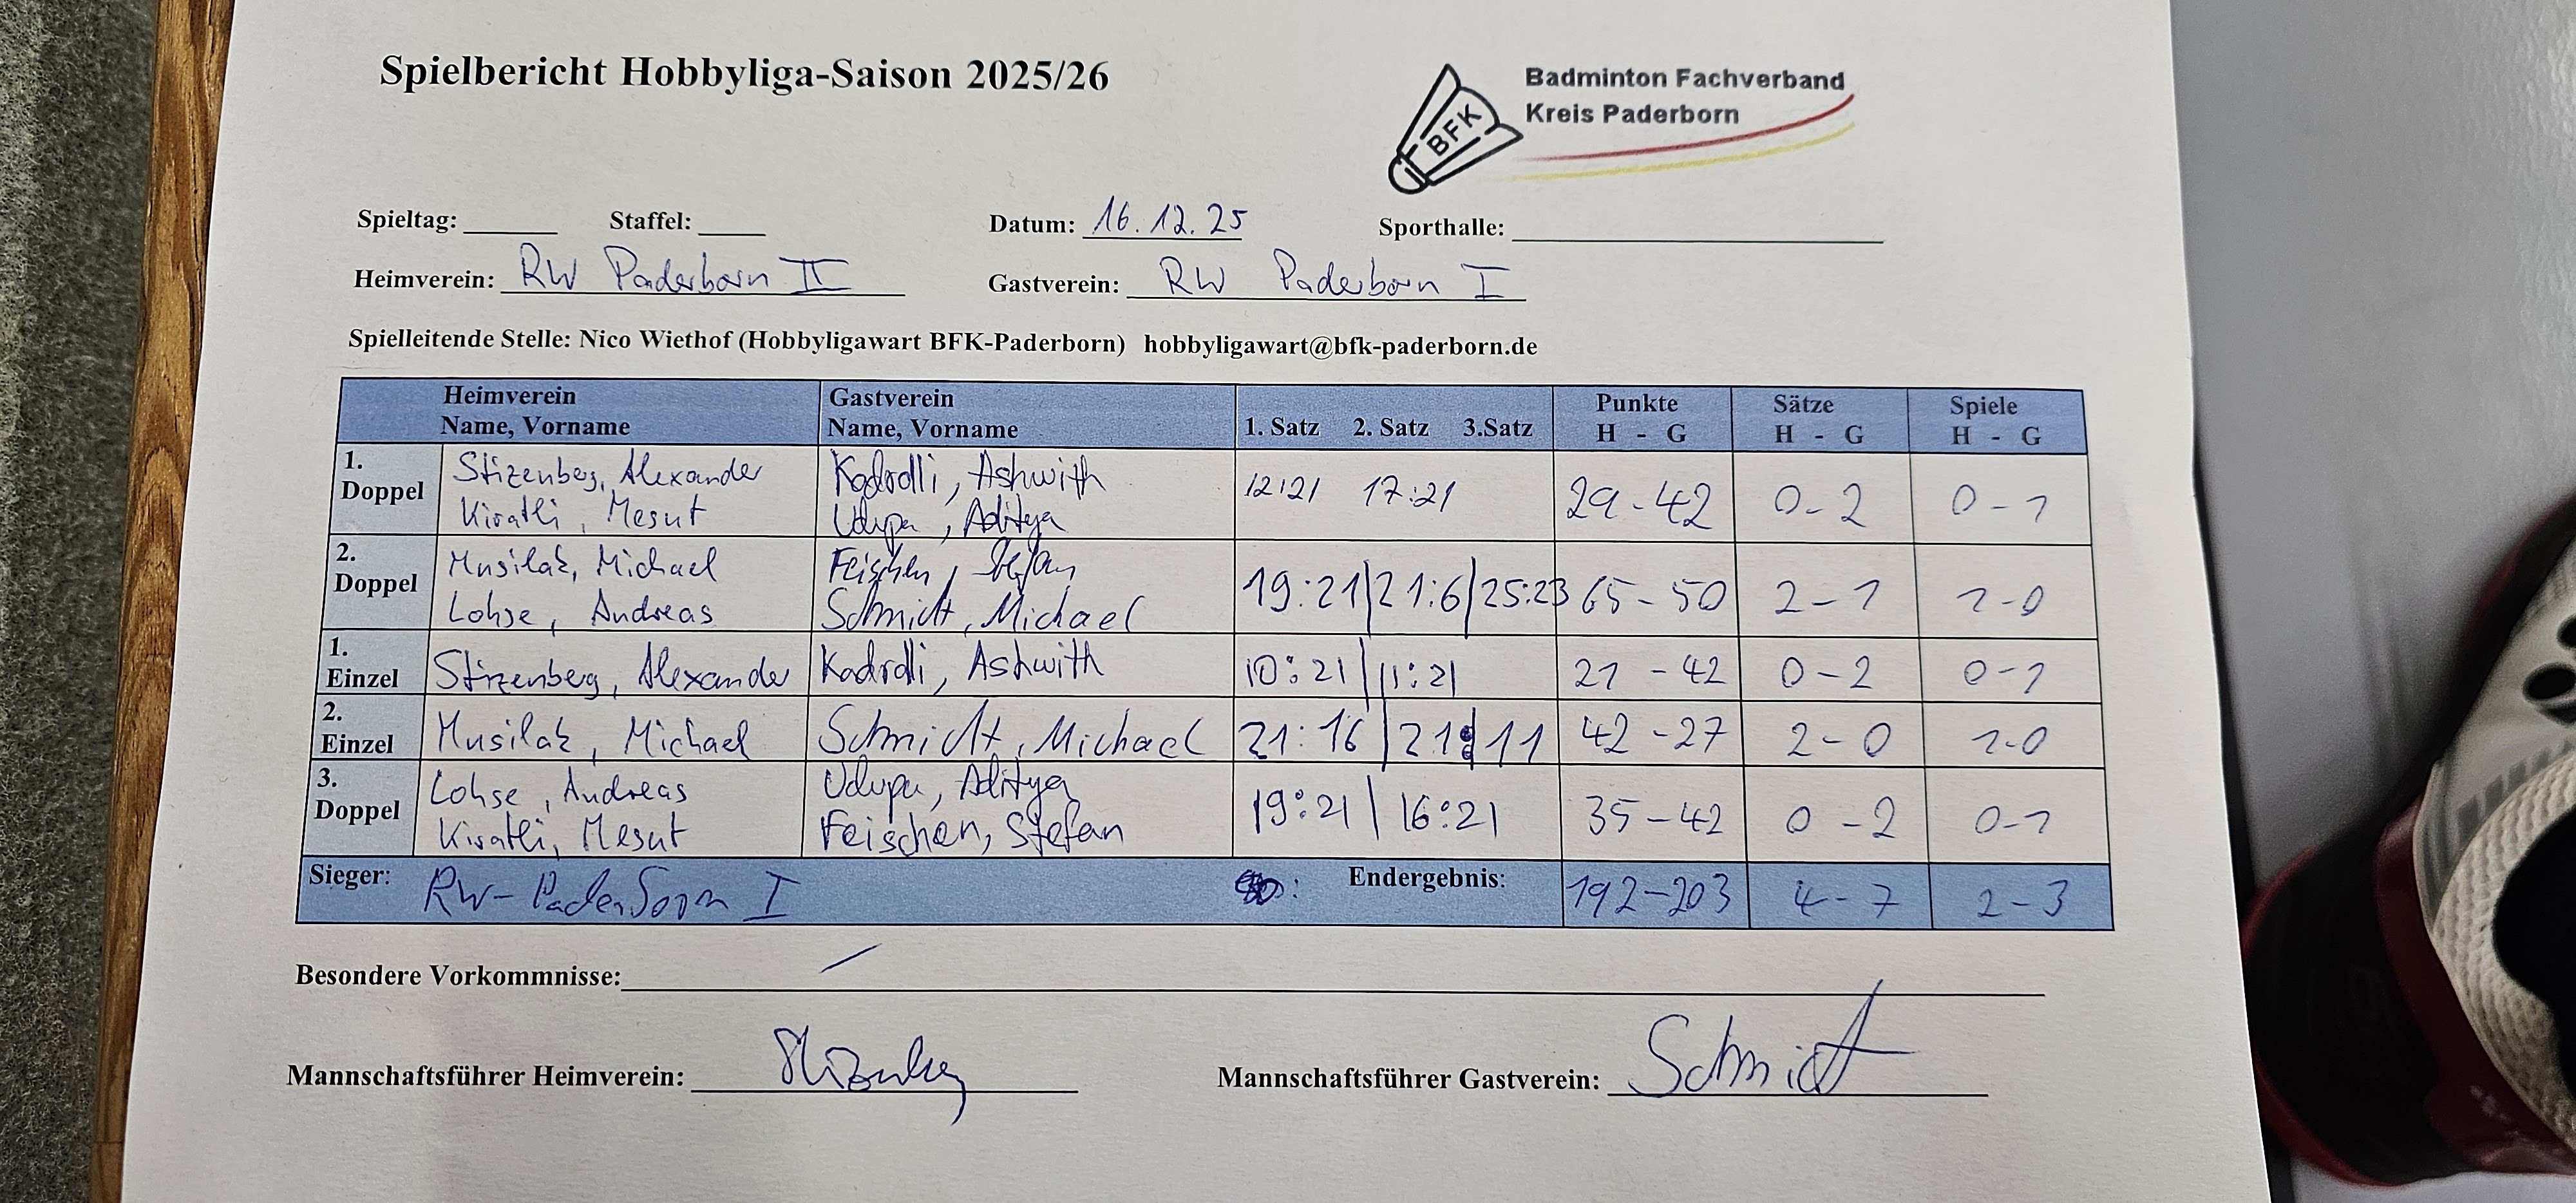 Spielbericht Hobbyliga-Saison 2025/26
BFK
Badminton Fachverband
Kreis Paderborn
Spieltag: Staffel: Datum: 16.12.25 Sporthalle:
Heimverein: RW Paderborn II Gastverein: RW Paderborn I
Spielleitende Stelle: Nico Wiethof (Hobbyligawart BFK-Paderborn) hobbyligawart@bfk-paderborn.de
Heimverein Gastverein Punkte Sätze Spiele
Name, Vorname Name, Vorname 1. Satz 2. Satz 3.Satz H - G H - G H - G
1. Doppel Stizenberg, Alexander Kadrolli, Ashwith 12:21 17:21 29-42 0-2 0-1
Kiratli, Mesut Udupa, Aditya
2. Doppel Musilak, Michael Feischen, Stefan 19:21 | 21:6 | 25:23 65-50 2-1 1-0
Lohse, Andreas Schmidt, Michael
1. Einzel Stizenberg, Alexander Kadrolli, Ashwith 10:21 | 11:21 21-42 0-2 0-1
2. Einzel Musilak, Michael Schmidt, Michael 21:16 | 21:11 42-27 2-0 1-0
3. Doppel Lohse, Andreas Udupa, Aditya 19:21 | 16:21 35-42 0-2 0-1
Kiratli, Mesut Feischen, Stefan
Sieger: RW-Paderborn I : Endergebnis: 192-203 4-7 2-3
Besondere Vorkommnisse: /
Mannschaftsführer Heimverein: Stizenberg Mannschaftsführer Gastverein: Schmidt